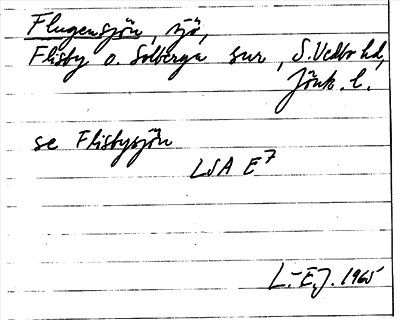 Flugensjön, sjö,
Flisby o. Solberga snr, S. Vedbo hd,
Jönk. l.
se Flisbysjön
LSA E7
L-E.J. 1965